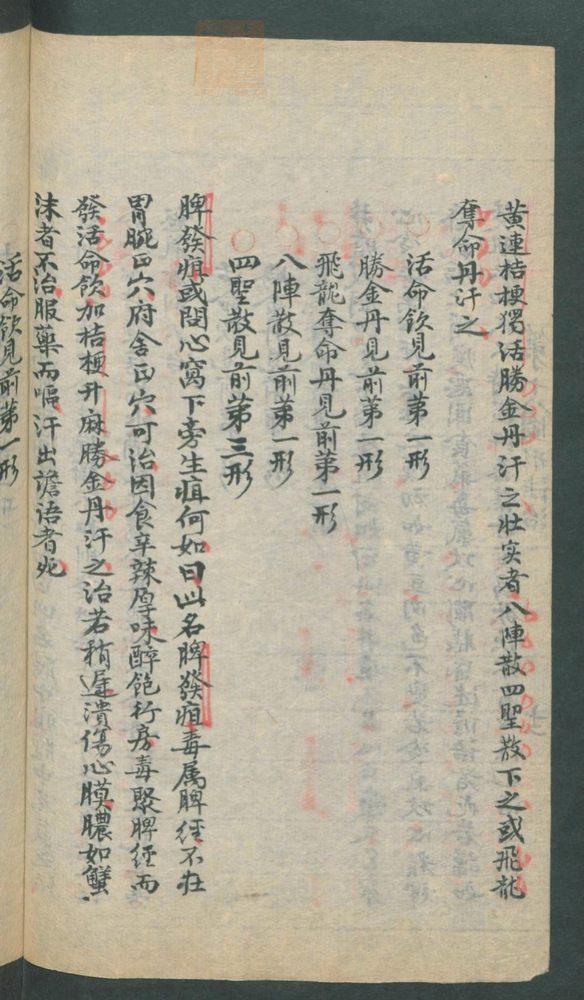 黄連桔梗獨活勝金丹汗之壯实者八陣散四聖散下之或飛龍
奪命丹汗之
活命飲見前第一形
勝金丹見前第一形
飛龍奪命丹見前第一形
八陣散見前第一形
四聖散見前第三形
脾發疽或問心窩下旁生疽何如曰此名脾發疽毒属脾徑不在
胃脘正穴府舍正穴可治因食辛辣厚味醉飽行房毒聚脾經而
發活命飲加桔梗升麻勝金丹汗之治若稍遲潰傷心膜膿如蟹
沫者不治服藥而嘔汗出譫语者死
活命飲見前第一形